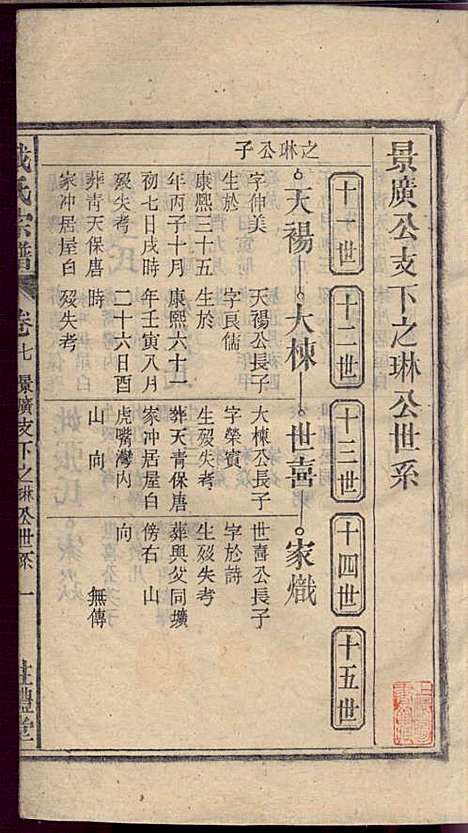 景廣公支下之琳公世系
十一世 十二世 十三世 十四世 十五世
之琳公子
天禓 大棟 世喜 家熾
字伸美
生於
康熙三十五
年丙子十月
初七日戌時
殁失考
葬青天保唐
家冲居屋白
天禓公長子
字良儒
生於
康熙六十一
年壬寅八月
二十六日酉
時
殁失考
大棟公長子
字榮賓
生殁失考
葬天青保唐
家冲居屋白
虎嘴灣內
山 向
世喜公長子
字於詩
生殁失考
葬與父同壙
傍右 山
向
無傳
氏宗譜
卷七 景廣支下之琳公世系 一
禮堂